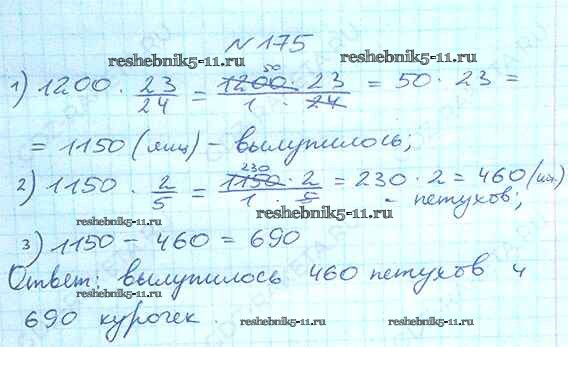 N 175
reshebnik5-11.ru reshebnik5-11.ru
1) 1200 · 23/24 = 1200 · 23 / 1 · 24 = 50 · 23 =
50
= 1150 (яиц) – вылупилось;
2) 1150 · 2/5 = 1150 · 2 / 1 · 5 = 230 · 2 = 460 (шт.)
230
– петухов;
reshebnik5-11.ru reshebnik5-11.ru
3) 1150 – 460 = 690
Ответ: вылупилось 460 петухов и
reshebnik5-11.ru
690 курочек.
reshebnik5-11.ru reshebnik5-11.ru